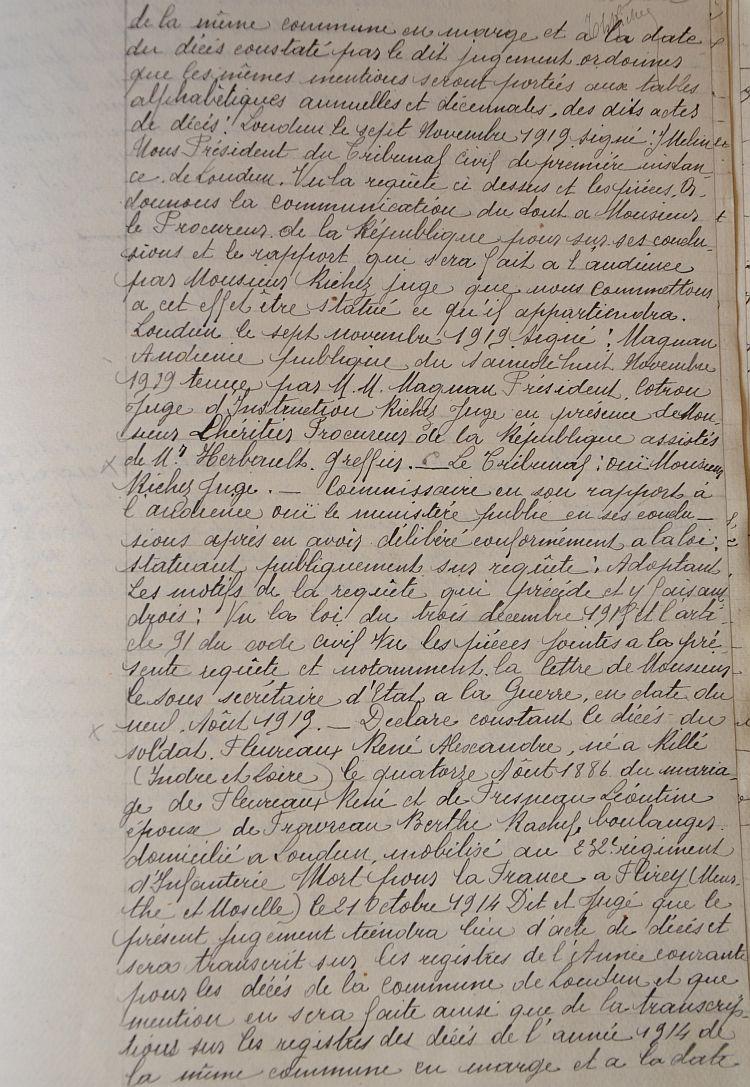 de la même commune en marge et à la date
du décès constaté par le dit jugement ordonner
que les mêmes mentions seront portées aux tables
alphabétiques annuelles et décennales, des dits actes
de décès! Loudun le sept Novembre 1919 signé:
Nous Président du Tribunal Civil de première instan-
ce de Loudun. Vu la requête ci dessus et les pièces. Or-
donnons la communication du tout a Monsieur
le Procureur de la République pour sur ses conclu-
sions et le rapport qui sera fait a l'audience
par Monsieur Richez juge que nous commettons
a cet effet être statué ce qu'il appartiendra.
Loudun le sept novembre 1919 signé: Magnan
Audience publique du samedi huit Novembre
1919 tenue par M.M. Magnan Président, Cotron
Juge d'Instruction Richez Juge en présence de Mon-
sieur Lhéritier Procureur de la République assistés
de Me Herbault. greffier. — Le Tribunal: ouï Monsieur
Richez Juge. — Commissaire en son rapport à
l'audience ouï le ministère public en ses conclu-
sions après en avoir délibéré conformément a la loi;
statuant publiquement sur requête: Adoptant
Les motifs de la requête qui précède et y faisant
droit: Vu la loi du trois décembre 1915 et l'arti-
cle 91 du code civil Vu les pièces jointes a la pré-
sente requête et notamment la lettre de Monsieur
le sous secrétaire d'Etat a la Guerre, en date du
neuf Août 1919. — Déclare constant le décès du
soldat. Fleureaux René Alexandre, né a Rillé
(Indre et Loire) le quatorze Août 1886 du maria-
ge de Fleureaux René et de Fresneau Léontine
époux de Berthe Rachel, boulanger.
domicilié a Loudun, mobilisé au 232e régiment
d'Infanterie Mort pour la France a Flirey (Meur-
the et Moselle) le 21 Octobre 1914 Dit et Jugé que le
présent jugement tiendra lieu d'acte de décès et
sera transcrit sur les registres de l'Année courante
pour les décès de la commune de Loudun et que
mention en sera faite ainsi que de la transcrip-
tions sur les registres des décès de l'année 1914 de
la même commune en marge et a la date